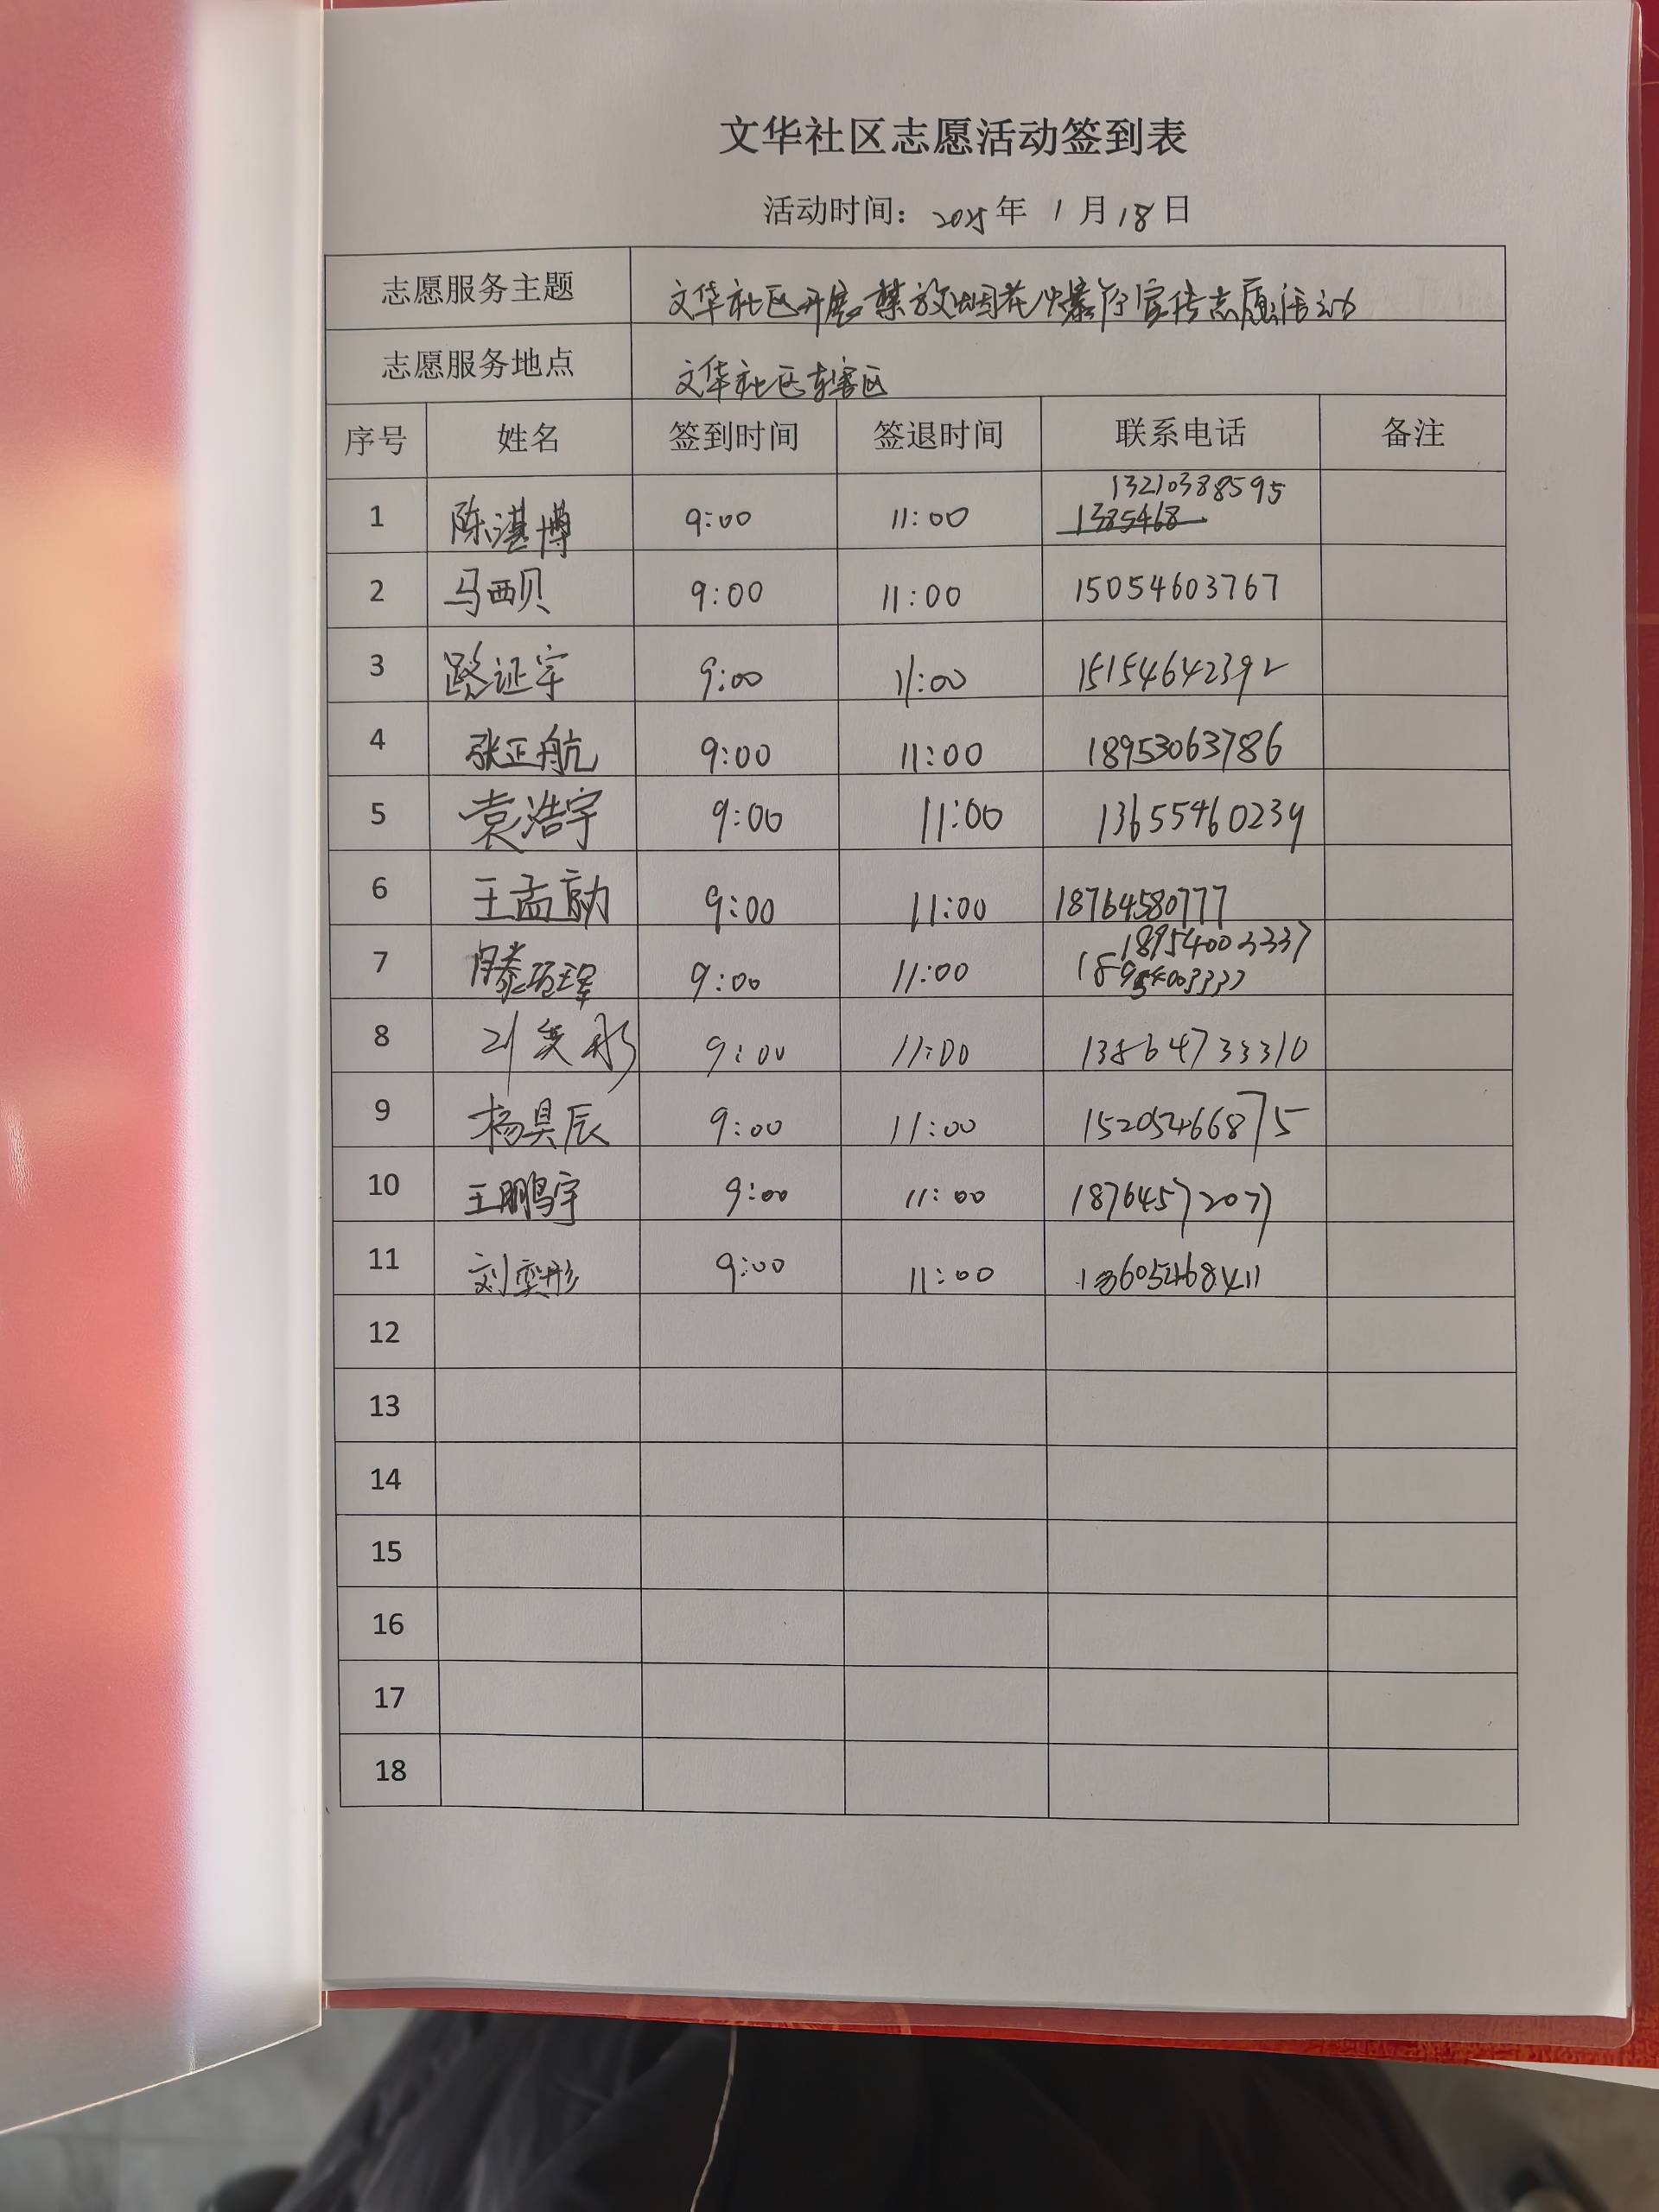 文华社区志愿活动签到表
活动时间：2025年 1月18日
志愿服务主题 文华社区开展禁放烟花爆竹宣传志愿活动
志愿服务地点 文华社区辖区
序号 姓名 签到时间 签退时间 联系电话 备注
1 陈湛博 9:00 11:00 13210388595
1385468
2 马西贝 9:00 11:00 15054603767
3 路证宇 9:00 11:00 15154642392
4 张正航 9:00 11:00 18953063786
5 袁浩宇 9:00 11:00 13655460239
6 王孟勋 9:00 11:00 18764580777
7 9:00 11:00 18954003337
18954003337
8 9:00 11:00 13864733310
9 杨昊辰 9:00 11:00 15205466875
10 王鹏宇 9:00 11:00 18764572077
11 刘奕彤 9:00 11:00 13605468411
12
13
14
15
16
17
18